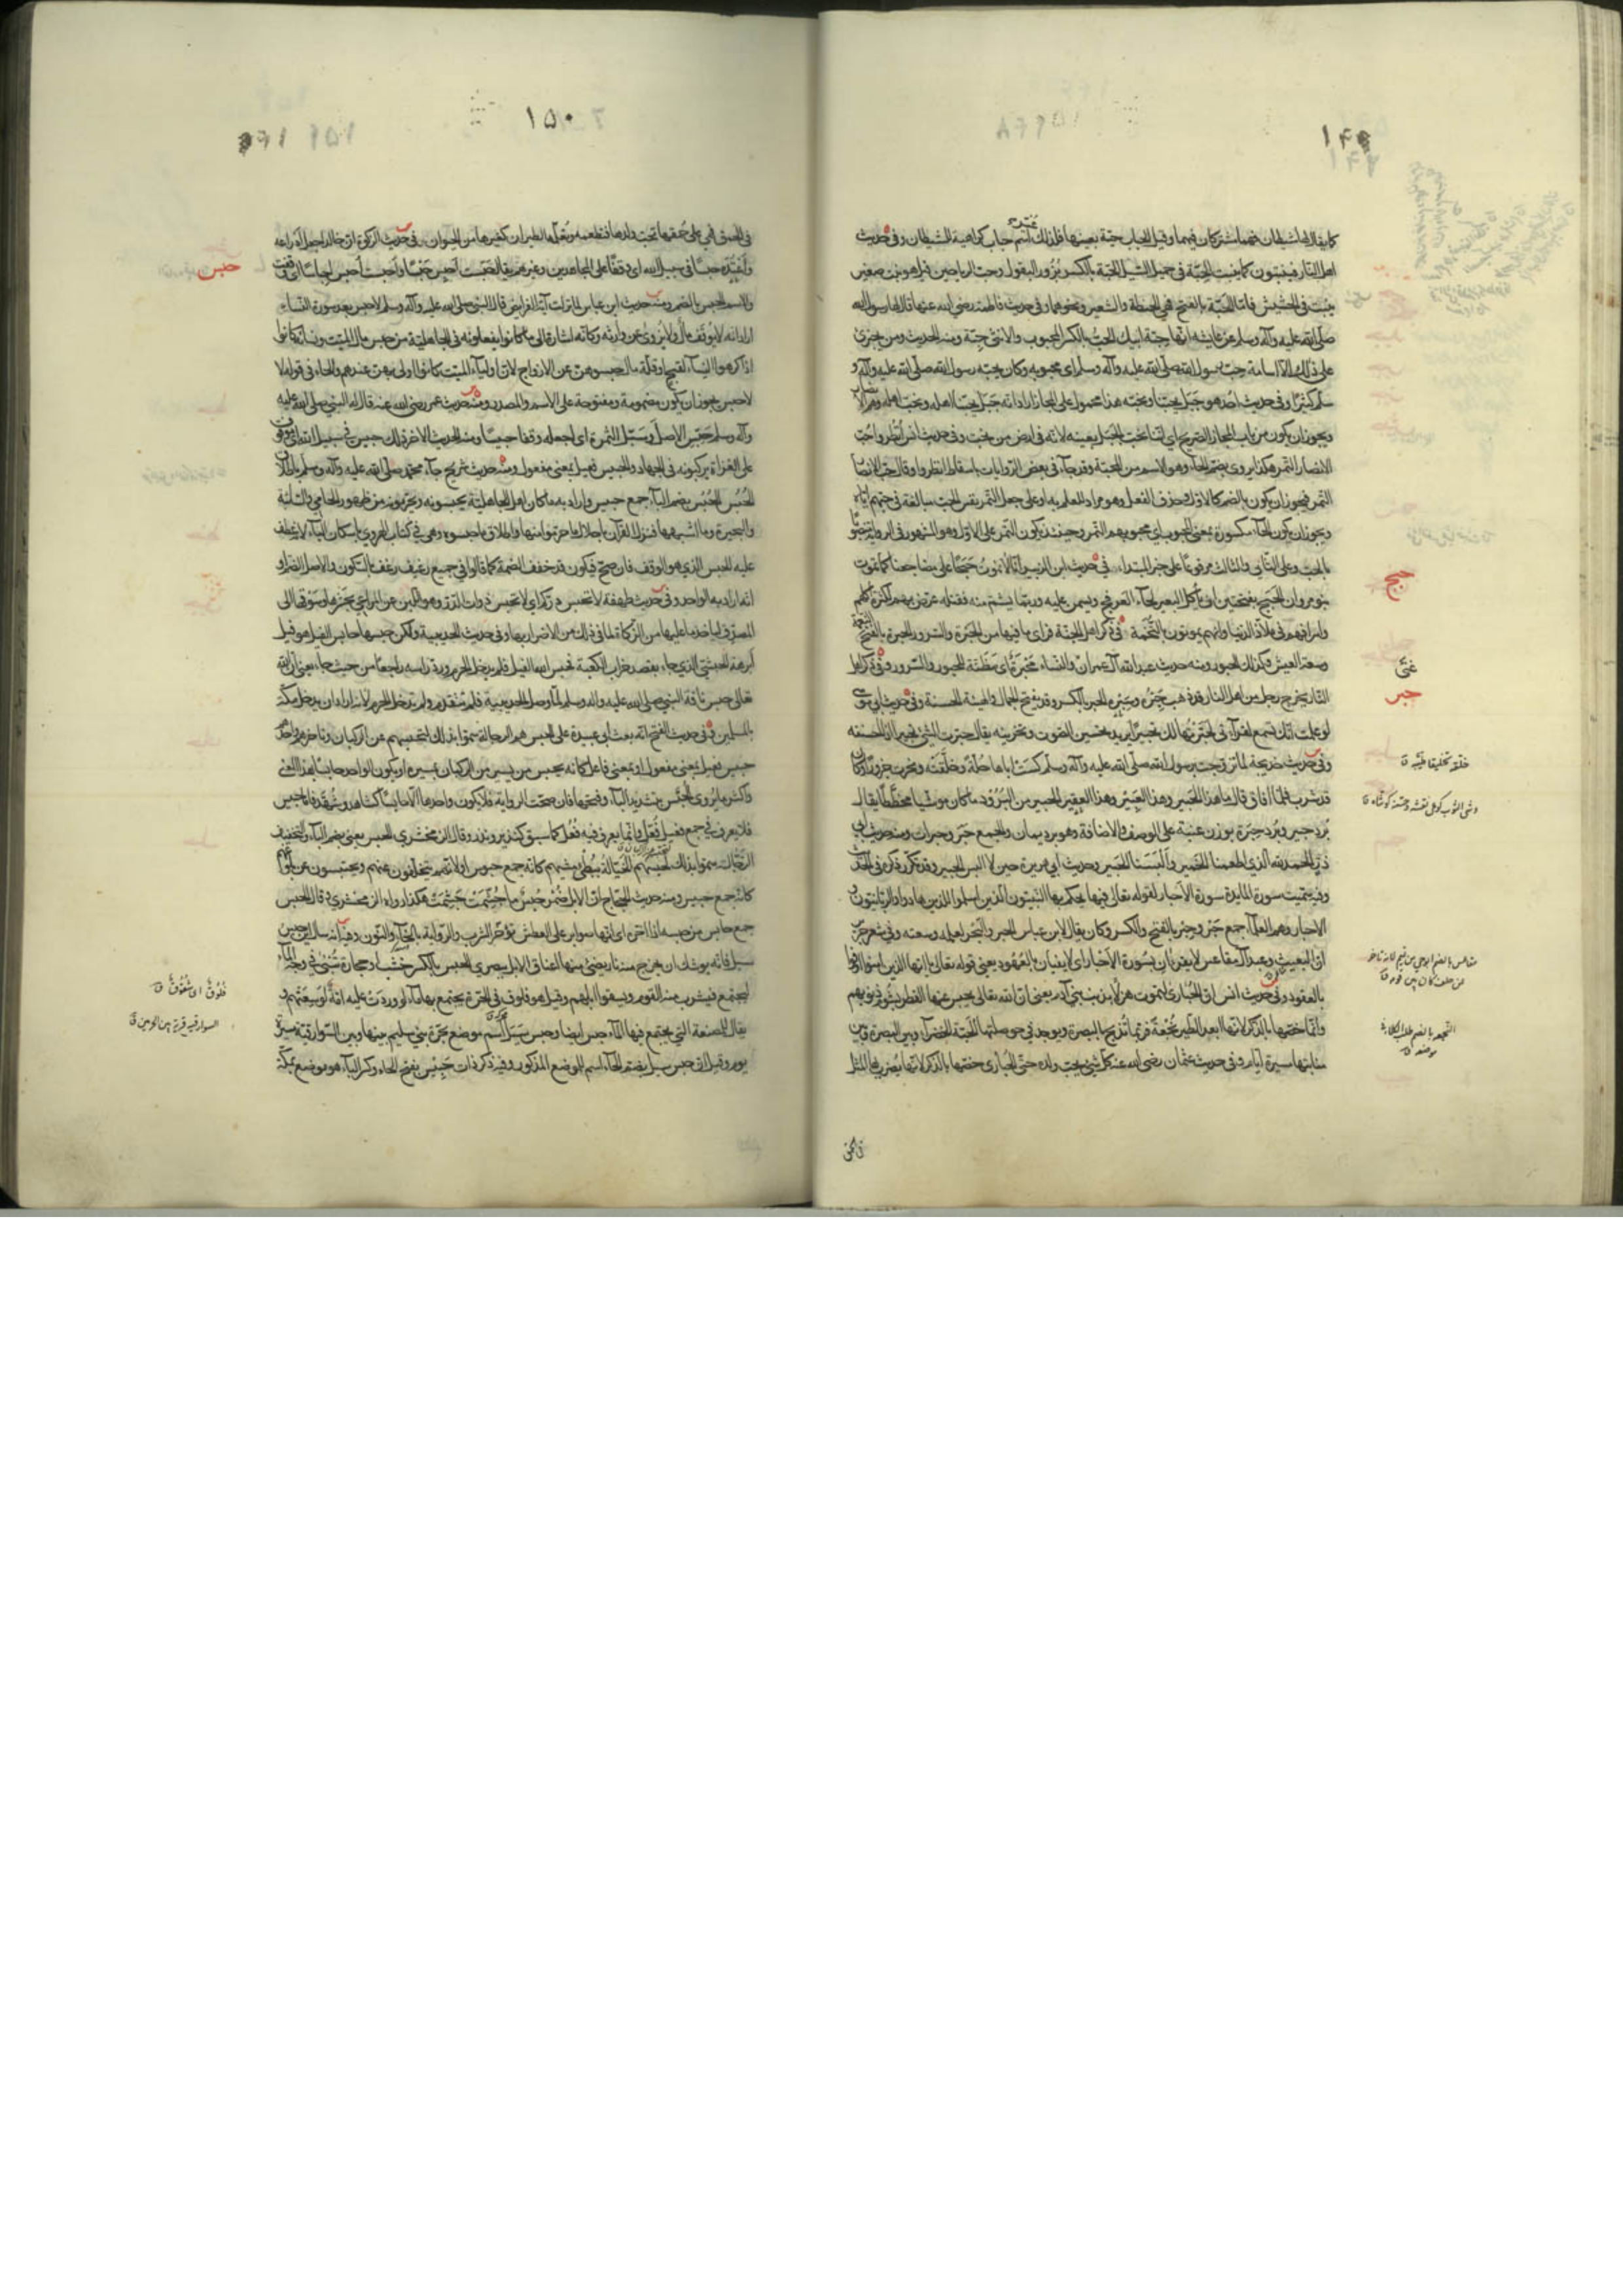 ١٤٩
كما يقال لها شيطان فهما مشتركان فيهما وقيل الحباب حية بعينها فلذلك اسم حباب كراهية للشيطان وفي حديث
اهل النار فينبتون كما ينبت الحِبّة في حميل السيل الحِبّة بالكسر بُزُور البقول وحب الرياحين وقيل هو نبت صغير
ينبت في الحشيش فاما الحَبّة بالفتح فهي الحنطة والشعير ونحوهما وفي حديث فاطمة رضي الله عنها قال لها رسول الله
صلى الله عليه وآله وسلم عن عايشة انها حِبّة ابيك الحِبّ بالكسر المحبوب والانثى حِبّة ومنه الحديث ومن يجترئ
على ذلك الا اسامة حِب رسول الله صلى الله عليه وآله وسلم اى محبوبه وكان يحبه رسول الله صلى الله عليه وآله و
سلم كثيرًا وفي حديث احد هو جَبَل يحبنا ونحبه هذا محمول على المجاز اراد انه جَبَل يحبنا اهله ونحب اهله وهم الانصار
ويجوز ان يكون من باب المجاز الصريح اي اننا نحب الجبل بعينه لانه في ارض من نحب وفي حديث انس انظروا حُب
الانصار التمر هكذا يروى بضم الحاء وهو الاسم من المحبة وقد جاء في بعض الروايات باسقاط انظروا وقال حب الانصار
التمر فيجوز ان يكون بالضم كالاول وحذف الفعل وهو مراد للعلم به او على جعل التمر نفس الحب مبالغة في حبهم اياه
ويجوز ان يكون الحاء مكسورة بمعنى المحبوب اي محبوبهم التمر وحينئذ يكون التمر على الاول وهو المشهور في الرواية منصوبًا
بالحب وعلى الثاني والثالث مرفوعًا على خبر المبتداء في حديث ابن الزبير انا لا نموت حَبَجًا على مضاجعنا كما يموت
بنو مروان الحَبَج بفتحتين ان ياكل البعير لحاء العرفج ويسمن عليه وربما بشم منه فقتله عرّض بهم لكثرة اكلهم
واسرافهم في ملاذ الدنيا وانهم يموتون بالتخمة في ذكر اهل الجنة فراى ما فيها من الحَبْرة والسرور الحبرة بالفتح النعمة
وسعة العيش وكذلك الحبور ومنه حديث عبد الله آل عمران غنى والنساء مَحْبَرَة اى مَظِنّة للحبور والسرور وفي ذكر اهل
النار يخرج رجل من اهل النار قد ذهب حِبْرُه وسِبْرُه الحبر بالكسر وقد يفتح الجمال والهيئة الحسنة وفي حديث ابي موسى
لو علمت انك تسمع لقراءتي لحبَّرْتُها لك تحبيرًا يريد تحسين الصوت وتحزينه يقال حبرت الشئ تحبيرا اذا حسنته
وفي حديث خديجة لما تزوجت برسول الله صلى الله عليه وآله وسلم كَسَت اباها حُلّة وخلّقته ونحرت جزورا وكان
قد شرب فلما افاق قال ما هذا الحَبير وهذا العَبِير وهذا العقِير الحبير من البُرُود ما كان موشيا مخططا يقال
بُرد حبير وبُرد حِبَرة بوزن عنبة على الوصف والاضافة وهو برد يمان والجمع حِبَر وحِبرات ومنه حديث ابي
ذر الحمد لله الذي اطعمنا الخمير والبَسَنا الحَبير وحديث ابي هريرة حين لا البس الحبير وقد تكرر ذكره في الحديث
وفيه سميت سورة المايدة سورة الأحبار لقوله تعالى فيها يحكم بها النبيون الذين اسلموا للذين هادوا والربانيون و
الاحبار وهم العلماء جمع حَبْر وحِبر بالفتح والكسر وكان يقال لابن عباس الحبر والبَحْر لعلمه وسعته وفي شعر جرير
ان البعيث وعبد آل مقاعس لا يقرءان بسُورة الأحبار اى لا يفيان بالعُهود يعنى قوله تعالى يا ايها الذين امنوا اوفوا
بالعقود وفي حديث انس ان الحُبارى لتموت هزلا بذنب بني آدم يعنى ان الله تعالى يحبس عنها القطر بشؤم ذنوبهم
وانما خصها بالذكر لانها ابعد الطير نُجْعةً فربما تُذبح بالبصرة ويوجد في حوصلتها الحَبّة الخضراء وبين البصرة وبين
منابتها مسيرة ايام وفي حديث عثمان رضى الله عنه كل شئ يحب ولده حتى الحُبارى خصها بالذكر لانها يُضرب بها المثل
حبج
غنى
حبر
خلقه تخليقا طيّبه ق
وشى الثوب كوعى نقشه وحسّنه كوشاه ق
النجعه بالضم طلب الكلاء في
موضعه ق
١٥٠
في الحمق فهي على حُمقها تحب ولدها فتطعمه وتُعلّمه الطيران كغيرها من الحيوان في حديث الزكوة ان خالدا جعل أدراعه
وأعْتُده حبسًا في سبيل الله اى وقفًا على المجاهدين وغيرهم يقال حَبَست أحبِس حَبْسًا وأحبست أُحبس احباسًا اى وقفت
والاسم الحبس بالضم ومنه حديث ابن عباس لما نزلت آية الفرايض قال النبي صلى الله عليه وآله وسلم لا حبس بعد سورة النساء
اراد انه لا يُوقَف مال ولا يُزوى عن وارثه وكانه اشارة الى ما كانوا يفعلونه في الجاهلية من حبس مال الميت ونسائه كانوا
اذا كرهوا النساء لقبح او قلة مال حبسوهن عن الازواج لان اولياء الميت كانوا اولى بهن عندهم والحاء في قوله لا
حبس يجوز ان يكون مضمومة ومفتوحة على الاسم والمصدر ومنه حديث عمر رضى الله عنه قال له النبي صلى الله عليه
وآله وسلم حَبّس الاصل وسَبّل الثمرة اى اجعله وقفا حبيسا ومنه الحديث الاخر ذلك حبيس في سبيل الله اى موقوف
على الغزاة يركبونه في الجهاد والحبيس فعيل بمعنى مفعول ومنه حديث شريح جاء محمد صلى الله عليه وآله وسلم باطلاق
الحُبُس الحُبُس بضم الباء جمع حبيس واراد به ما كان اهل الجاهلية يحبسونه ويحرمونه من ظهور الحامي والسائبة
والبحيرة وما اشبهها فنزل القرآن باحلال ما حرموا منها واطلاق ما حبسوه وهو في كتاب الهروي باسكان الباء لانه عطف
عليه الحبس الذي هو الوقف فان صح فيكون قد خفف الضمة كما قالوا في جميع رغيف رغف بالسكون والاصل الضم او
انه اراد به الواحد وفي حديث طهفة لا تحبس دركم اى لا تحبس ذوات الدر وهو اللبن عن المراعي بحشرها وسوقها الى
المصدق لياخذ ما عليها من الزكاة لما في ذلك من الاضرار بها وفي حديث الحديبية ولكن حبسها حابس الفيل هو فيل
ابرهة الحبشي الذي جاء يقصد خراب الكعبة فحبس الله الفيل فلم يدخل الحرم ورد راسه راجعا من حيث جاء يعنى ان الله
تعالى حبس ناقة النبي صلى الله عليه وآله وسلم لما وصل الحديبية فلم تتقدم ولم تدخل الحرم لانه اراد ان يدخل مكة
بالمسلمين وفي حديث الفتح انه بعث ابا عبيدة على الحبس هم الرجالة سموا بذلك لتحبسهم عن الركبان وتاخرهم واحدهم
حبيس فعيل بمعنى مفعول او بمعنى فاعل كانه يحبس من يسير من الركبان بمسيره او يكون الواحد حابسًا بهذا المعنى
واكثر ما يُروى الحُبَّس بتشديد الباء وفتحها فان صحت الرواية فلا يكون واحدها الا حابسًا كشاهد وشُهّد فاما حبيس
فلا يعرف في جمع فعيل فُعّل وانما يعرف فيه فُعُل كما سبق كنذير ونذر وقال الزمخشري الحبس يعنى بضم الباء والتخفيف
الرجالة سموا بذلك لحبسهم الخيّالة ببُطْئ مشيهم كانه جمع حبوس او لانهم يتخلفون عنهم ويحتبسون عن بلوغهم
كانه جمع حبيس ومنه حديث الحجاج ان الابل ضُمُر حُبُس ما جُشّمت جَشِمَت هكذا رواه الزمخشري وقال الحبس
جمع حابس من حبسه اذا اخره اى انها صوابر على العطش تؤخر الشرب والرواية بالخاء والنون وفيه انه سال اين حبس
سيل فانه يوشك ان يخرج منه نار يضئ منها اعناق الابل ببصرى الحبس بالكسر خشب او حجارة تُبنى في وجه الماء
ليجتمع فيشرب منه القوم ويسقوا ابلهم وقيل هو فلوق في الحرة يجتمع بها ماء لو وردت عليه امة لوسِعتهم و
يقال للمصنعة التي يجتمع فيها الماء حبس ايضا وحبس سيل اسم موضع بحرة بني سليم بينها وبين السوارقية مسيرة
يوم وقيل ان حبس سيل بضم الحاء اسم للموضع المذكور وفيه ذكر ذات حَبِيس بفتح الحاء وكسر الباء هو موضع بمكة
حبس
فُلُوقٌ اى شُقُوقٌ ق
السوارقيه قرية بين الحرمين ق